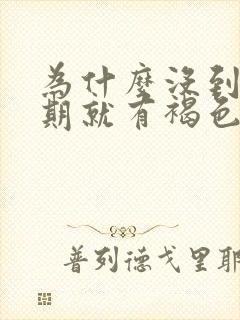 為什麼沒到
期就有褐色
普列德戈里耶